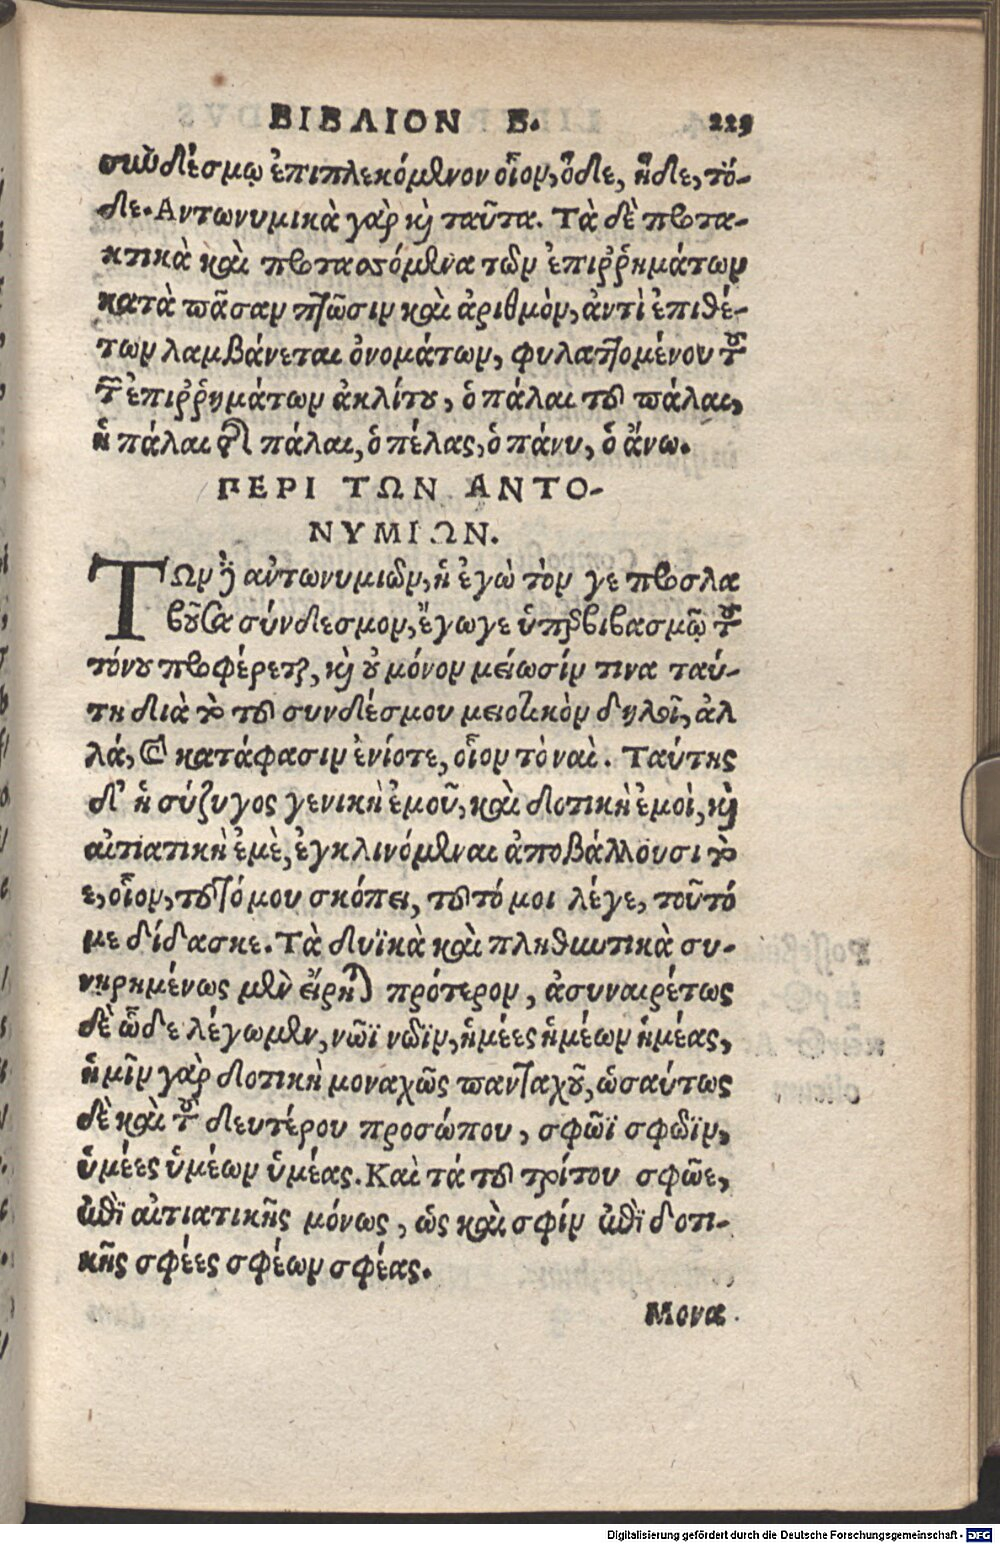 ΒΙΒΛΙΟΝ Β. 229
συνδέσμῳ ἐπιπλεκόμενον οἷον, ὅδε, ἥδε, τό-
δε. Αντωνυμικὰ γὰρ καὶ ταῦτα. Τὰ δὲ προτα-
κτικὰ καὶ προτασσόμενα τῶν ἐπιῤῥημάτων
κατὰ πᾶσαν πτῶσιν καὶ ἀριθμὸν, ἀντὶ ἐπιθέ-
των λαμβάνεται ὀνομάτων, φυλαττομένου τοῦ
τῶν ἐπιῤῥημάτων ἀκλίτου, ὁ πάλαι τοῦ πάλαι,
ἡ πάλαι τῆς πάλαι, ὁ πέλας, ὁ πάνυ, ὁ ἄνω.
ΠΕΡΙ ΤΩΝ ΑΝΤΟ-
ΝΥΜΙΩΝ.
ΤΩν δὲ αὐτωνυμιῶν, ἡ ἐγὼ τὸν γε προσλα
βοῦσα σύνδεσμον, ἔγωγε ὑπερβιβασμῷ τοῦ
τόνου προφέρεται, καὶ οὐ μόνον μείωσίν τινα ταύ-
τη διὰ τὸ τοῦ συνδέσμου μειοτικὸν δηλοῖ, ἀλ
λά, καὶ κατάφασιν ἐνίοτε, οἷον τὸ ναὶ. Ταύτης
δ' ἡ σύζυγος γενικὴ ἐμοῦ, καὶ δοτικὴ ἐμοὶ, καὶ
αἰτιατικὴ ἐμὲ, ἐγκλινόμεναι ἀποβάλλουσι τὸ
ε, οἷον, τοῦτό μου σκόπει, τοῦτό μοι λέγε, τοῦτό
με δίδασκε. Τὰ δυϊκὰ καὶ πληθωτικὰ συ-
νηρημένως μὲν εἴρηται πρότερον, ἀσυναιρέτως
δὲ ὧδε λέγωμεν, νῶϊ νῶϊν, ἡμέες ἡμέων ἡμέας,
ἡμῖν γὰρ δοτικὴ μοναχῶς πανταχοῦ, ὡσαύτως
δὲ καὶ τοῦ δευτέρου προσώπου, σφῶϊ σφῶϊν,
ὑμέες ὑμέων ὑμέας. Καὶ τά τοῦ τρίτου σφῶε,
ἐπὶ αἰτιατικῆς μόνως, ὡς καὶ σφίν ἐπὶ δοτι-
κῆς σφέες σφέων σφέας.
Μονα
Digitalisierung gefördert durch die Deutsche Forschungsgemeinschaft - DFG